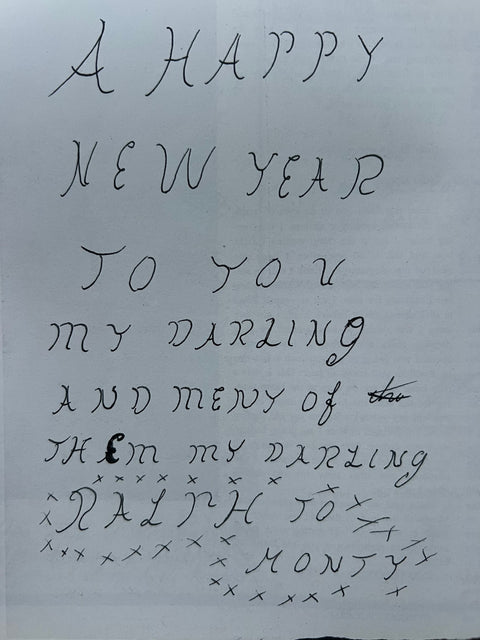 A HAPPY
NEW YEAR
TO YOU
MY DARLING
AND MENY of
THEM MY DARLING
RALPH TO
MONTY